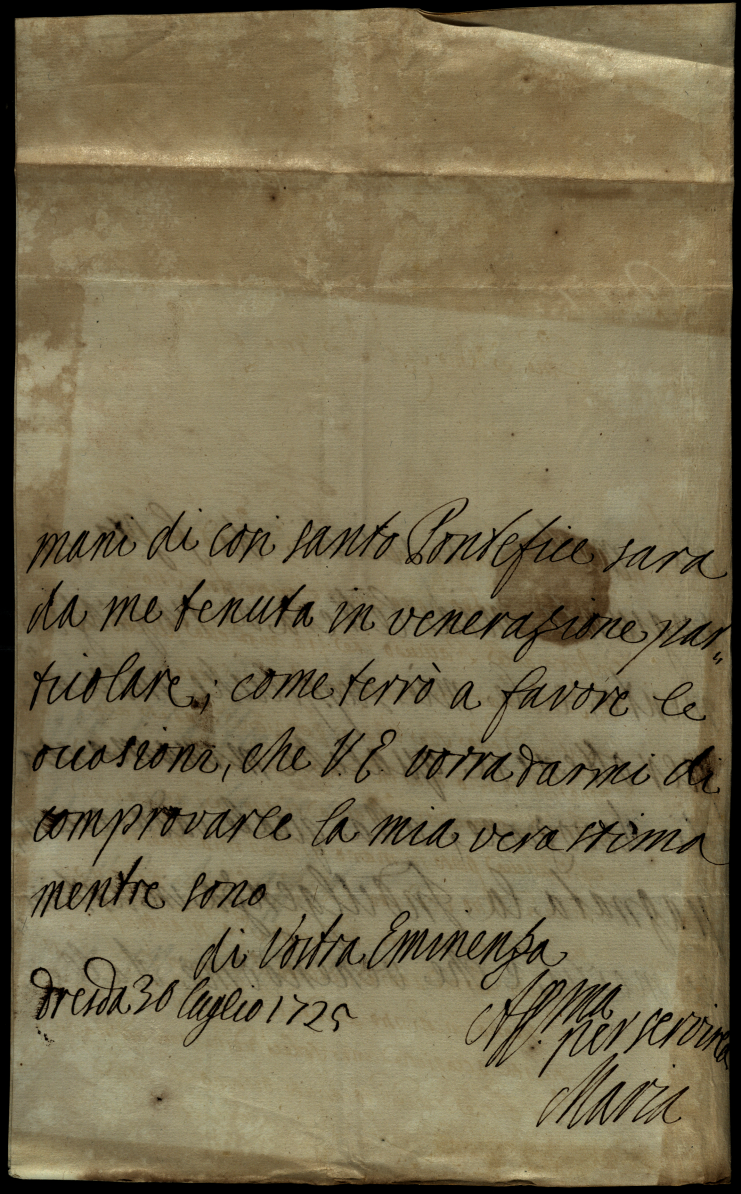 mani di così santo Pontefice sara
da me tenuta in venerazione par„
ticolare; come terrò a favore le
occasioni, che V. E. vorra darmi di
comprovarle la mia vera stima
mentre sono
di Vostra Eminenza
Dresda 30 luglio 1725
Aff.ma
per servirla
Maria